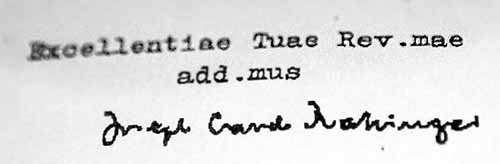 Excellentiae Tuae Rev.mae
add.mus
Joseph Card Ratzinger